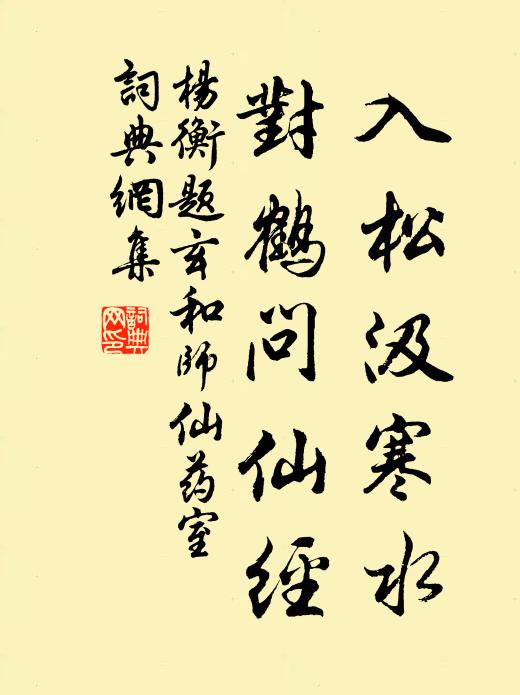 入松汲寒水
對鶴問仙經
楊衡题玄和師仙药室
詞典網集
詞典
网印